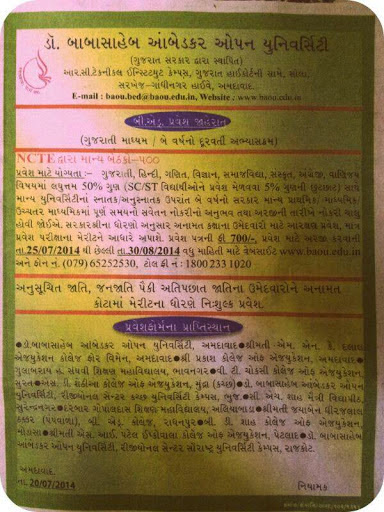 ડૉ. બાબાસાહેબ આંબેડકર ઓપન યુનિવર્સિટી
(ગુજરાત સરકાર દ્વારા સ્થાપિત)
આર.સી.ટેકનીકલ ઇન્સ્ટિટ્યુટ કેમ્પસ, ગુજરાત હાઈકોર્ટની સામે, સોલા,
સરખેજ-ગાંધીનગર હાઈવે, અમદાવાદ.
E-mail : baou.bed@baou.edu.in, Website : www.baou.edu.in
બી.એડ્. પ્રવેશ જાહેરાત
(ગુજરાતી માધ્યમ / બે વર્ષનો દૂરવર્તી અભ્યાસક્રમ)
NCTE દ્વારા માન્ય બેઠકો-૫૦૦
પ્રવેશ માટે યોગ્યતા :- ગુજરાતી, હિન્દી, ગણિત, વિજ્ઞાન, સમાજવિદ્યા, સંસ્કૃત, અંગ્રેજી, વાણિજ્ય
વિષયમાં લઘુત્તમ 50% ગુણ (SC/ST વિદ્યાર્થીઓને પ્રવેશ મેળવવા 5% ગુણની છૂટછાટ) સાથે
માન્ય યુનિવર્સિટીના સ્નાતક/અનુસ્નાતક ઉપરાંત બે વર્ષનો સરકાર માન્ય પ્રાથમિક/માધ્યમિક/
ઉચ્ચતર માધ્યમિકમાં પૂર્ણ સમયનો સવેતન નોકરીનો અનુભવ તથા અરજીની તારીખે નોકરી ચાલુ
હોવી જોઈએ. સરકારશ્રીના ધોરણો અનુસાર અનામત કક્ષાના ઉમેદવારો માટે આરક્ષણ પ્રવેશ, માત્ર
પ્રવેશ પરીક્ષાના મેરીટને આધારે અપાશે. પ્રવેશ પત્રની ફી 700/-. પ્રવેશ માટે અરજી કરવાની
તા.25/07/2014 થી છેલ્લી તા.30/08/2014 વધુ માહિતી માટે વેબસાઈટ www.baou.edu.in
અને ફોન નં. (079) 65252530, ટોલ ફ્રી નં : 1800 233 1020
અનુસૂચિત જાતિ, જનજાતિ પૈકી અતિપછાત જાતિના ઉમેદવારોને અનામત
ક્વોટામાં મેરીટના ધોરણે નિઃશુલ્ક પ્રવેશ.
પ્રવેશફોર્મના પ્રાપ્તિસ્થાન
●ડૉ.બાબાસાહેબ આંબેડકર ઓપન યુનિવર્સિટી, અમદાવાદ●શ્રીમતી એમ. એન. કે. દલાલ
એજ્યુકેશન કોલેજ ફોર વિમેન, અમદાવાદ● શ્રી પ્રકાશ કોલેજ ઓફ એજ્યુકેશન, અમદાવાદ●
ગુલાબરાય હ. સંઘવી શિક્ષણ મહાવિદ્યાલય, ભાવનગર● વી. ટી. ચોકસી કોલેજ ઓફ એજ્યુકેશન,
સુરત●એસ. ડી. શેઠિયા કોલેજ ઓફ એજ્યુકેશન, મુંદ્રા (કચ્છ)● ડૉ. બાબાસાહેબ આંબેડકર ઓપન
યુનિવર્સિટી, રીજીયોનલ સેન્ટર કચ્છ યુનિવર્સિટી કેમ્પસ, ભુજ.● સી. એચ. શાહ મૈત્રી વિદ્યાપીઠ,
સુરેન્દ્રનગર●દરબાર ગોપાળદાસ શિક્ષણ મહાવિદ્યાલય, અલિયાબાડા●શ્રીમતી જમાબેન ધીરજલાલ
ઠક્કર (પંપવાળા), બી. એડ્. કોલેજ, રાધનપુર● બી. ડી. શાહ કોલેજ ઓફ એજ્યુકેશન,
મોડાસા●શ્રીમતી એસ. આઈ. પટેલ ઈપ્કોવાલા કોલેજ ઓફ એજ્યુકેશન, પેટલાદ● ડૉ. બાબાસાહેબ
આંબેડકર ઓપન યુનિવર્સિટી, રીજીયોનલ સેન્ટર સૌરાષ્ટ્ર યુનિવર્સિટી કેમ્પસ, રાજકોટ.
અમદાવાદ.
તા. 20/07/2014
નિયામક